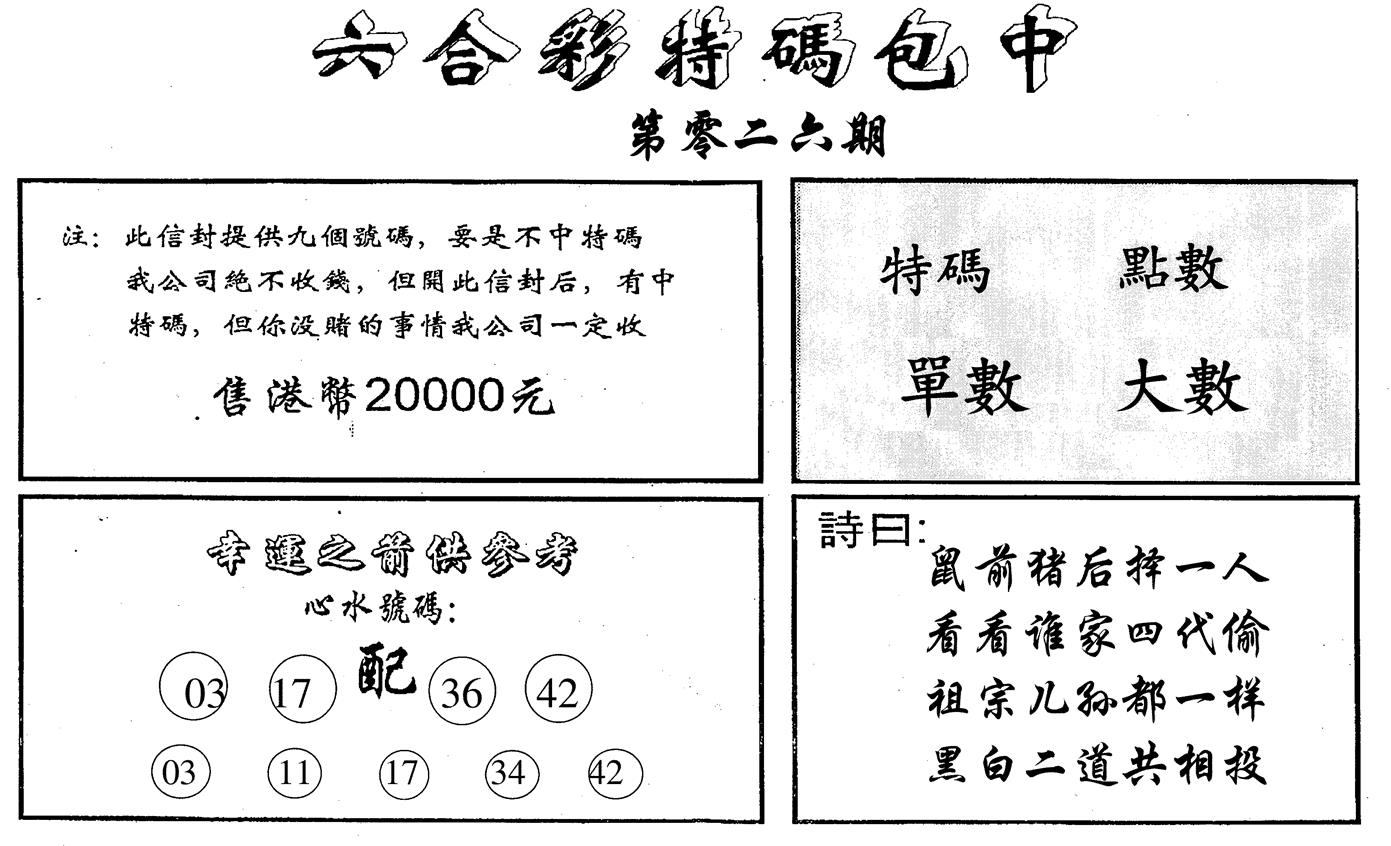 六合彩特碼包中
第零二六期
注：此信封提供九個號碼，要是不中特碼
我公司絕不收錢，但開此信封后，有中
特碼，但你没賭的事情我公司一定收
售港幣20000元
特碼 點數
單數 大數
幸運之箭供參考
心水號碼：
03 17 配 36 42
03 11 17 34 42
詩曰：
鼠前猪后择一人
看看谁家四代偷
祖宗儿孙都一样
黑白二道共相投